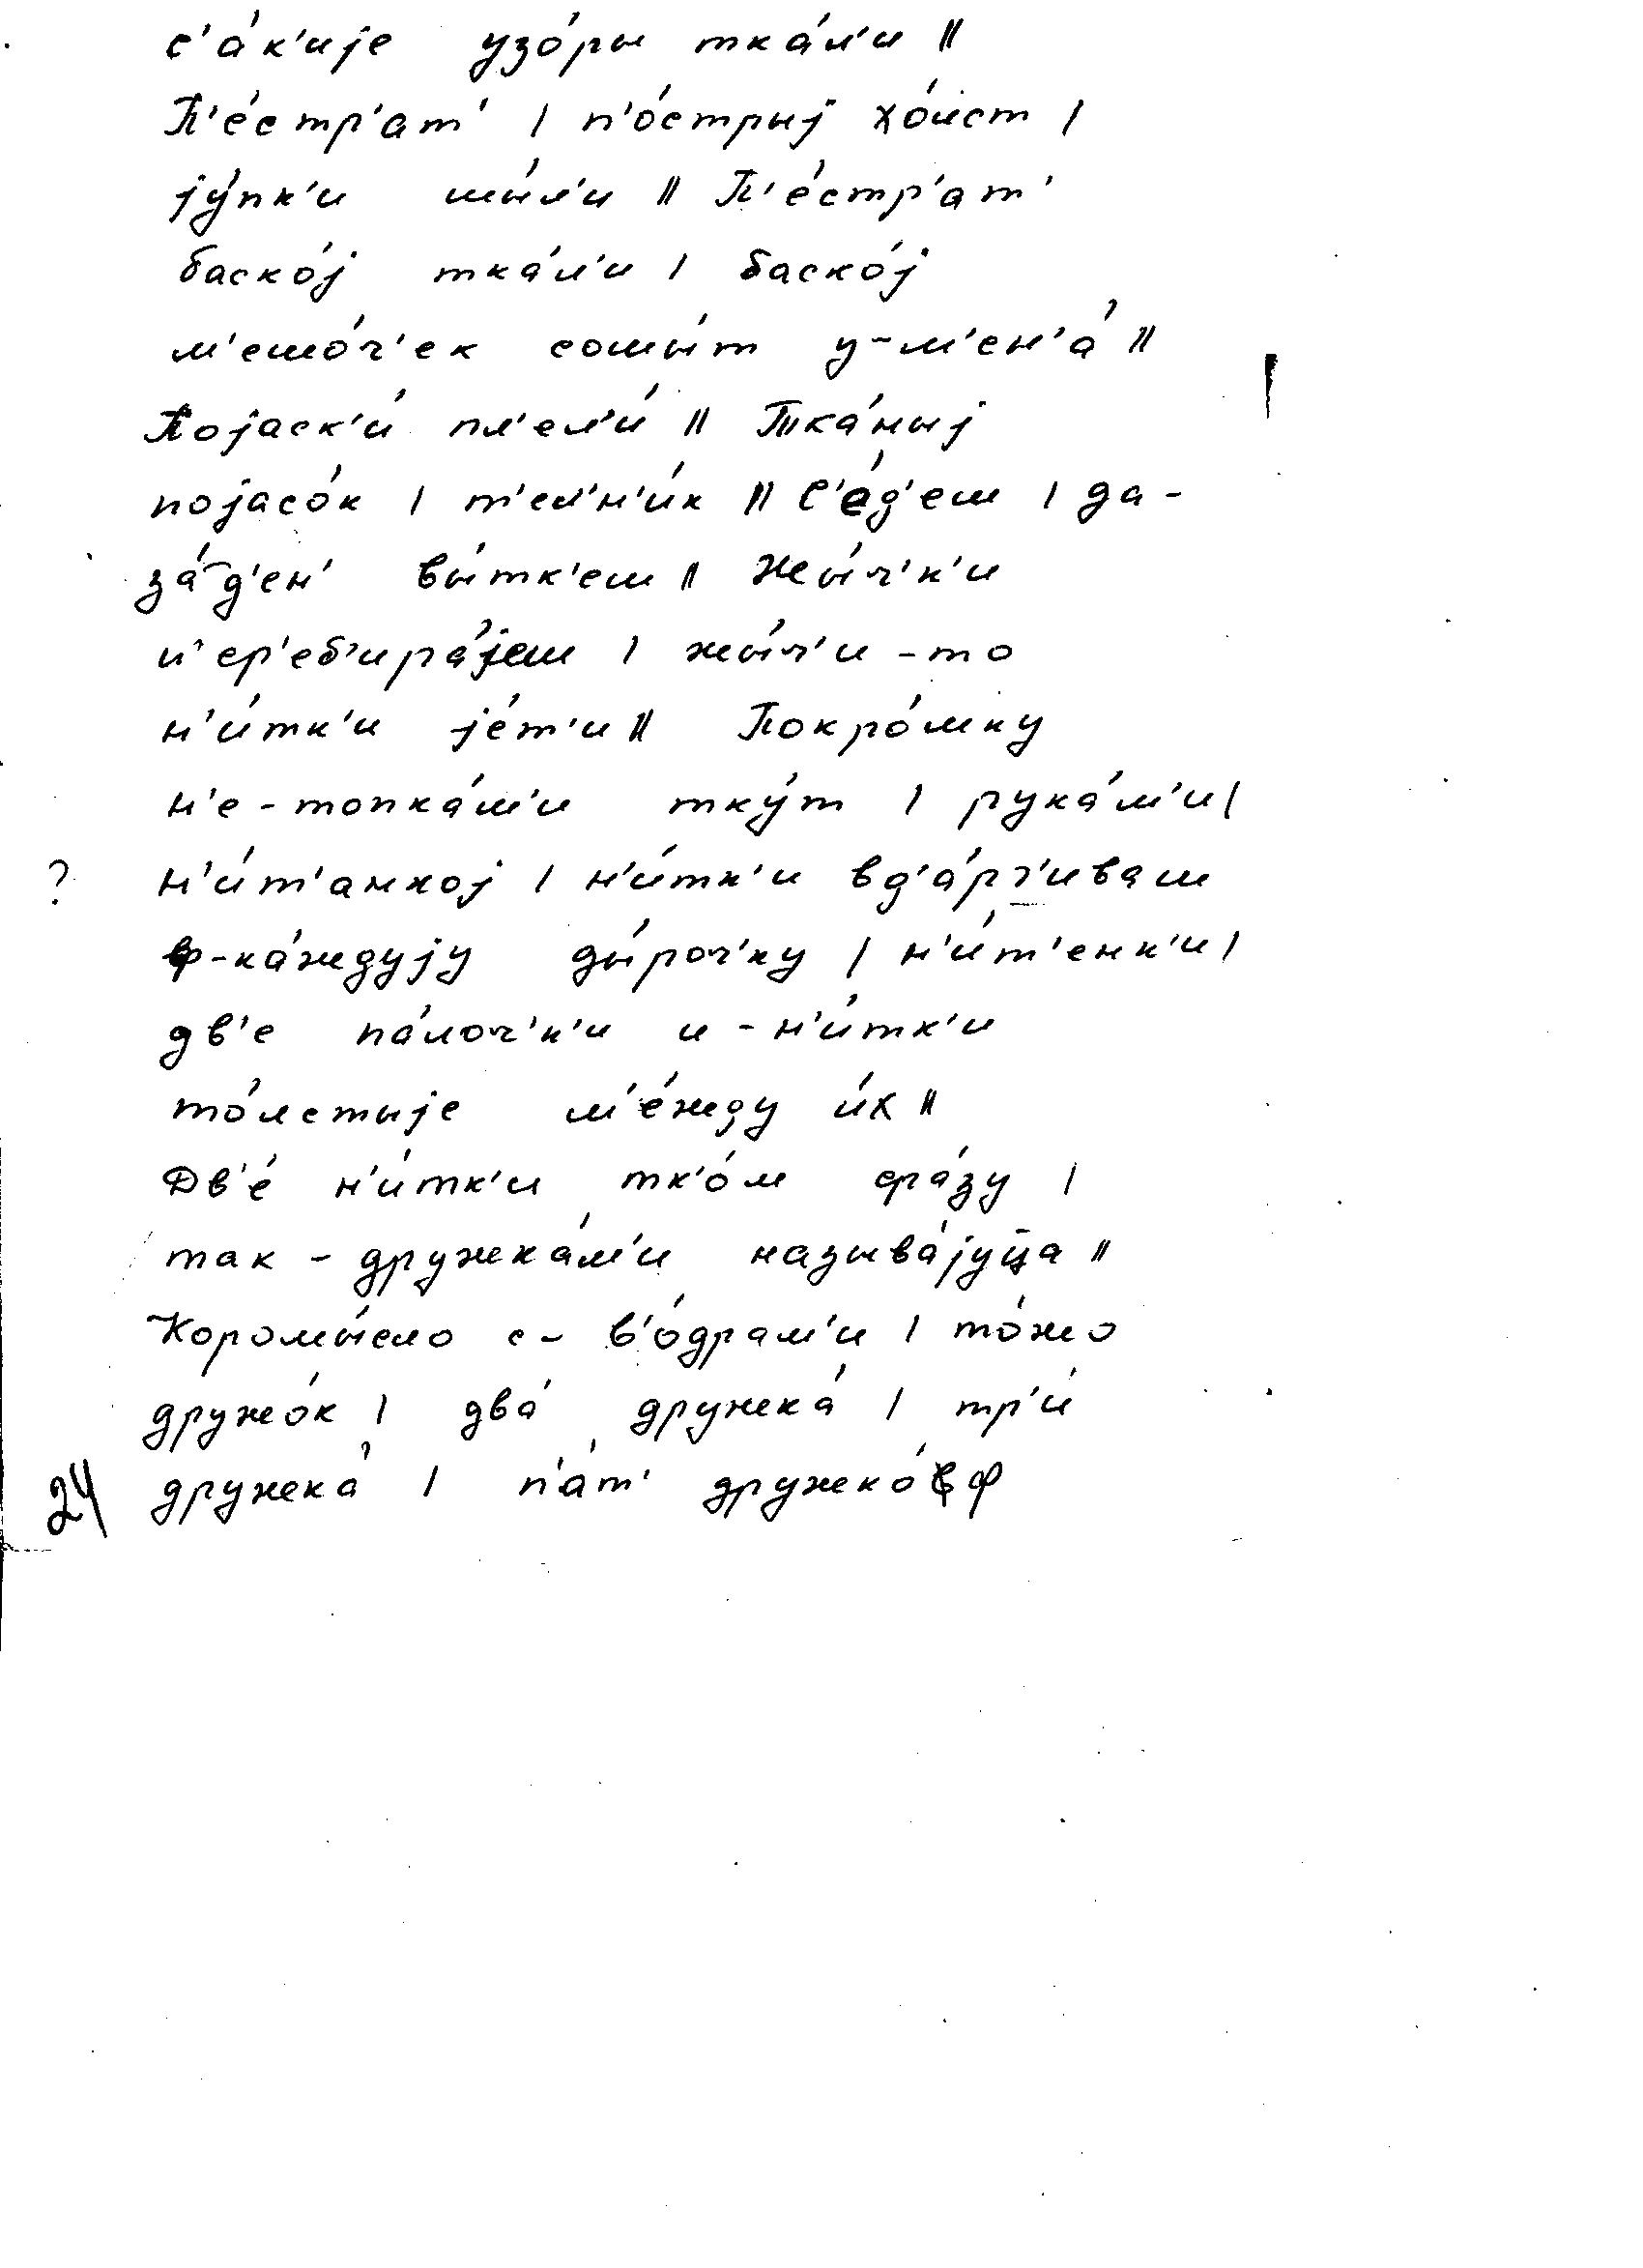 с'а́к'ије узо́ры тка́л'и ||
П'е́стр'ат' | п'о́стрыј хо́лст |
ју́пк'и шы́л'и || П'е́стр'ат'
баско́ј тка́л'и | баско́ј
м'ешо́ч'ек сошы́т у-м'ен'а́ ||
Појаск'и́ пл'ел'и́ || Тка́ныј
појасо́к | т'ел'н'и́к || С'а́д'еш | да-
за́-д'ен' вы́тк'еш || Жы́ч'к'и
п'ер'еб'ира́јеш | жы́ч'и-то
н'и́тк'и је́т'и || Покро́мку
н'е-топка́м'и тку́т | рука́м'и |
? н'и́т'анкој | н'и́тк'и вд'а́рг'иваш
ф-ка́ждују ды́роч'ку | н'и́т'енк'и |
дв'е па́лоч'к'и и-н'и́тк'и
то́лстыје м'е́жду и́х ||
Дв'е́ н'и́тк'и тк'о́м сра́зу |
так-дружка́м'и называ́јуц̄а ||
Коромы́сло с-в'о́драм'и | то́жо
дружо́к | два́ дружка́ | тр'и́
24 дружка́ | п'а́т' дружко́ф